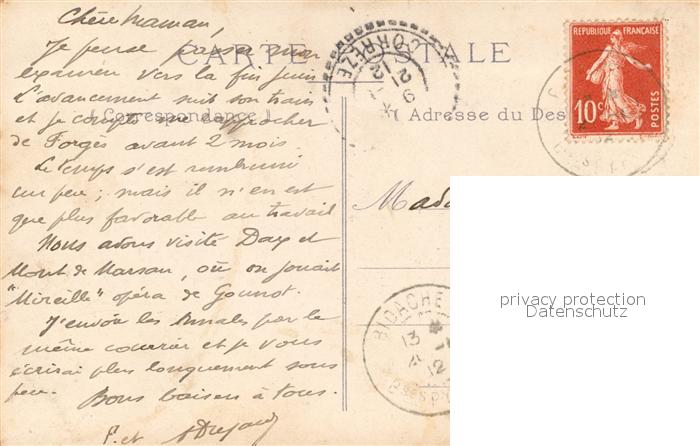 Chère Maman,
Je pense passer mon
examen vers la fin juin
L'avancement suit son train
et je compte me rapprocher
de Forgès avant 2 mois.
Le temps s'est rembruni
un peu ; mais il n'en est
que plus favorable au travail
Nous avons visité Dax et
Mont de Marsan, où on jouait
"Mireille" opéra de Gounot.
J'envoie les Annales par le
même courrier et je vous
écrirai plus longuement sous
peu. Bons baisers à tous.
CARTE POSTALE
Correspondance
Adresse du Des
CORREZE
REPUBLIQUE FRANÇAISE
10c
POSTES
Mada
BIDACHE
13
12
privacy protection
Datenschutz